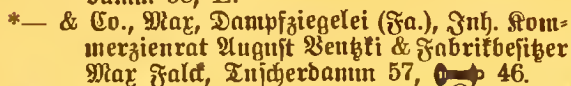 *— & Co., Max, Dampfziegelei (Fa.), Inh. Kom-
merzienrat August Ventzki & Fabrikbesitzer
Max Falck, Tuscherdamm 57, 46.